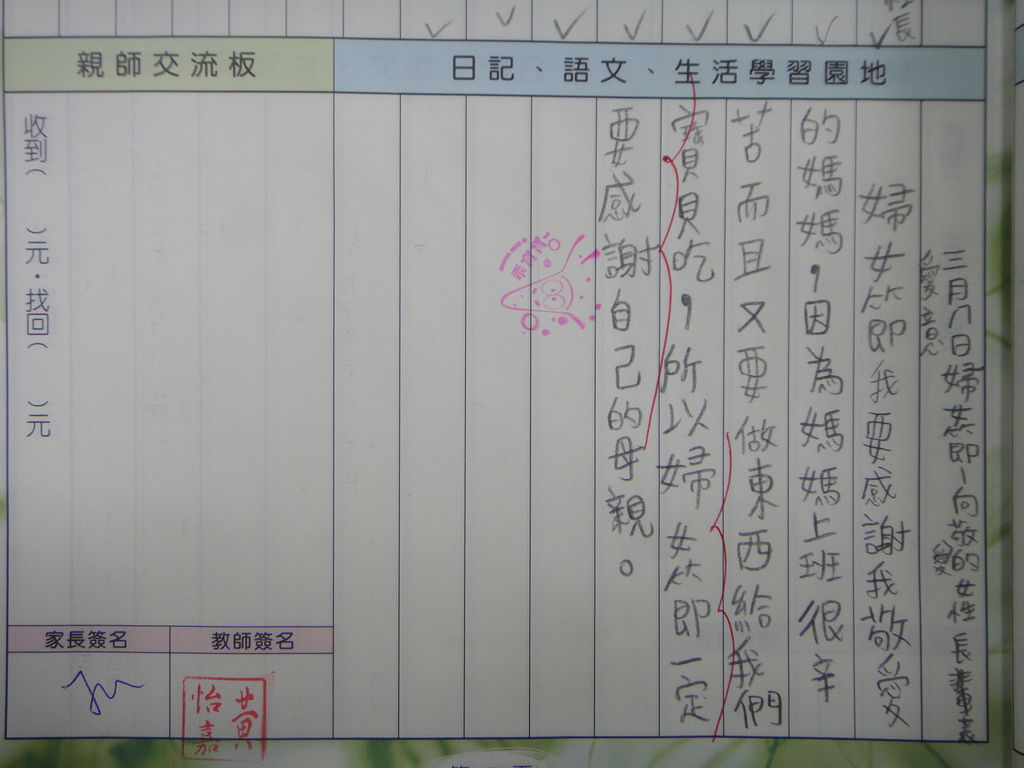 親師交流板
日記、語文、生活學習園地
社長
三月八日婦女節—向敬愛的女性長輩表
愛意
婦女節即我要感謝我敬愛
的媽媽,因為媽媽上班很辛
苦而且又要做東西給我們
寶貝貝吃,所以婦女節即一定
要感謝自己的母親。
收到( )元.找回( )元
家長簽名
教師簽名
黃怡嘉